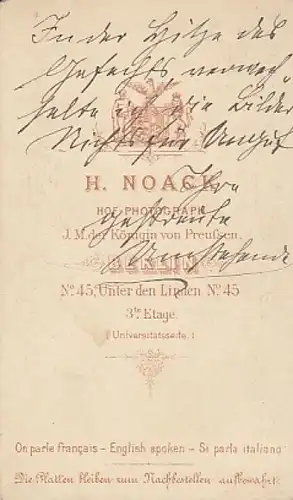 In der Hitze des
Gefechts verwech„
selte ich die Bilder
Nichts für Ungut
H. NOACK
Ihre
HOF-PHOTOGRAPH
zerstreute
I. M. der Königin von Preußen.
BERLIN
Umstehende
No. 45, Unter den Linden No. 45
3te Etage.
(Universitätsseite.)
On parle français – English spoken – Si parla italiano
Die Platten bleiben zum Nachbestellen aufbewahrt.